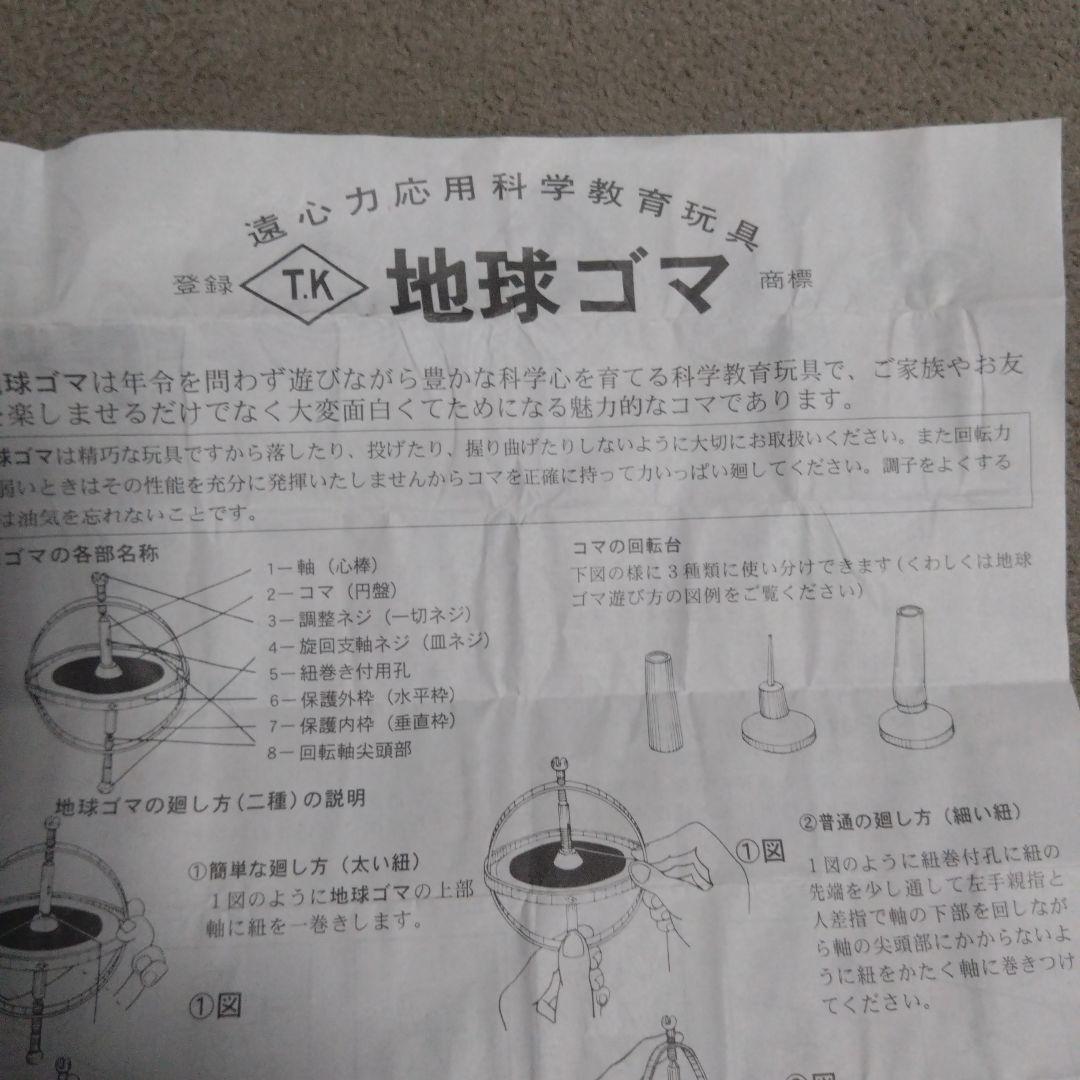 遠心力応用科学教育玩具
登録 T.K 地球ゴマ 商標
球ゴマは年令を問わず遊びながら豊かな科学心を育てる科学教育玩具で、ご家族やお友
楽しませるだけでなく大変面白くてためになる魅力的なコマであります。
球ゴマは精巧な玩具ですから落したり、投げたり、握り曲げたりしないように大切にお取扱いください。また回転力
弱いときはその性能を充分に発揮いたしませんからコマを正確に持って力いっぱい廻してください。調子をよくする
は油気を忘れないことです。
ゴマの各部名称
1−軸（心棒）
2−コマ（円盤）
3−調整ネジ（一切ネジ）
4−旋回支軸ネジ（皿ネジ）
5−紐巻き付用孔
6−保護外枠（水平枠）
7−保護内枠（垂直枠）
8−回転軸尖頭部
コマの回転台
下図の様に3種類に使い分けできます(くわしくは地球
ゴマ遊び方の図例をご覧ください)
地球ゴマの廻し方(二種)の説明
①簡単な廻し方（太い紐）
1図のように地球ゴマの上部
軸に紐を一巻きします。
①図
①図
②普通の廻し方（細い紐）
1図のように紐巻付孔に紐の
先端を少し通して左手親指と
人差指で軸の下部を回しなが
ら軸の尖頭部にかからないよ
うに紐をかたく軸に巻きつけ
てください。